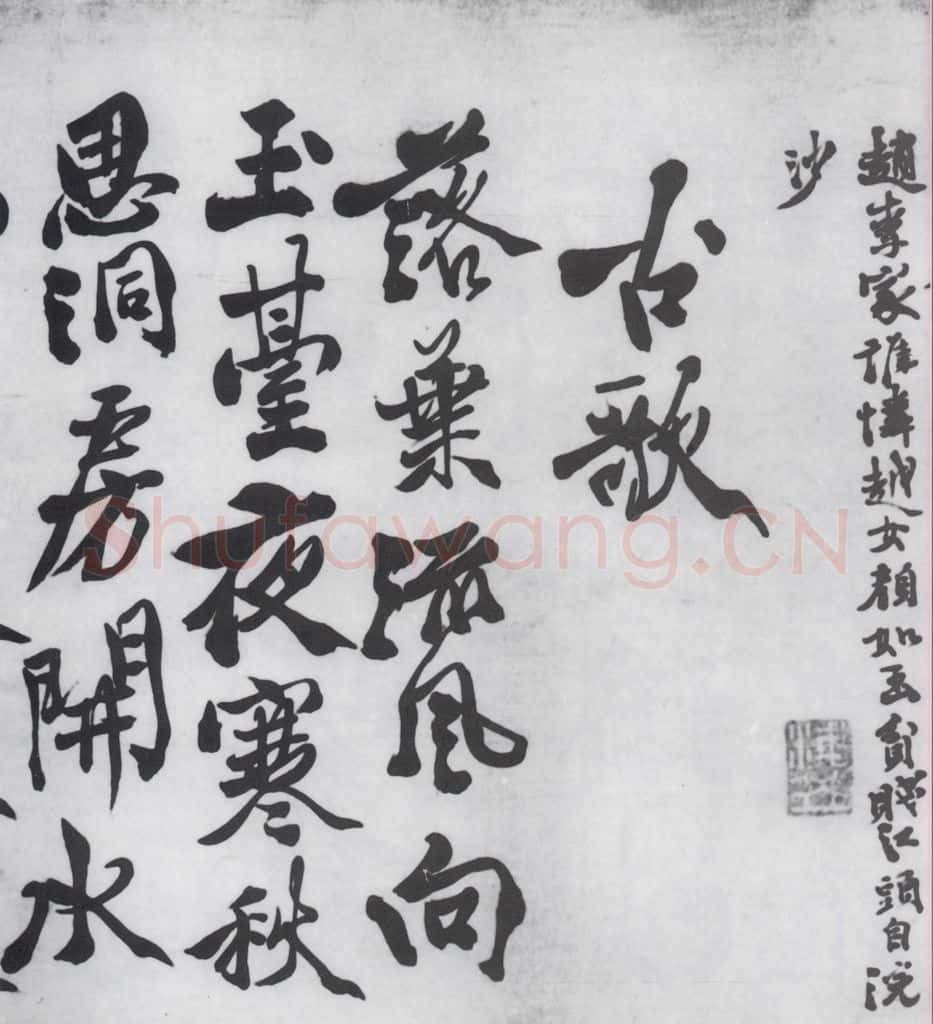 趙李家誰憐越女顏如玉貧賤江頭自浣
沙
古歌
落葉流風向
玉臺夜寒秋
思洞房開水
Shufawang.CN